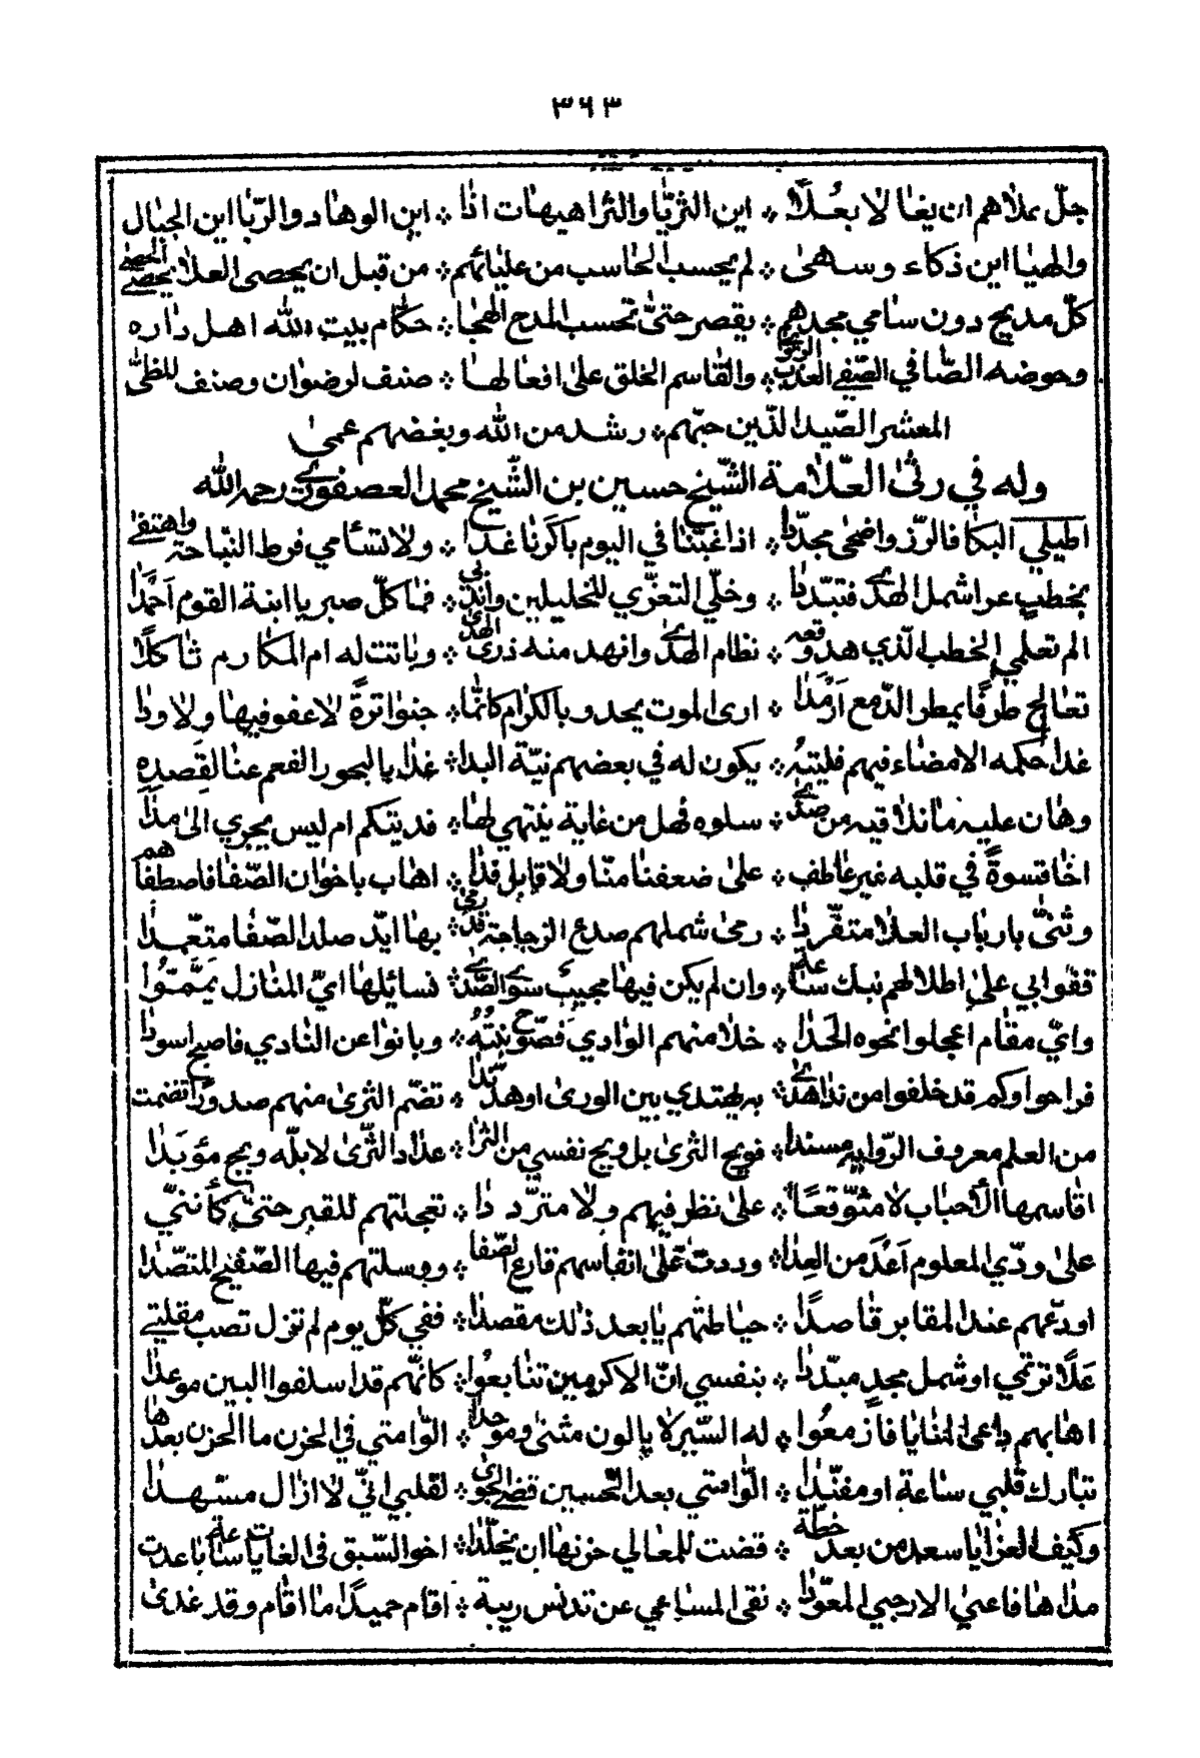 ٣٦٣
جلّ علاهم ان يغا لا بعُلا * اين الثريّا والثرا هيهات اذا * اين الوهاد والرّبا اين الجبال
والهيا اين ذكاء وسهىٰ * لم يحسب الحاسب من عليائهم * من قبل ان يحصى العلا يحصى الحصى
كلّ مديح دون سامي مجدهم * يقصر حتىّ تحسب المدح الهجا * حكّام بيت الله اهل داره
وحوضه الصّافي الصّفى العذب الروى * والقاسم الخلق علىٰ افعالها * صنف لرضوان وصنف للظىّ
المعشر الصّيد الّذين حبّهم * رشد من الله وبغضهم عمىٰ
وله في رثىٰ العلّامة الشّيخ حسين بن الشّيخ محمد العصفوري رحمه الله
اطيلي البكا فالرّزو اضحىٰ مجدّدا * اذا غبّنا في اليوم باكرنا غدا * ولا تسأمي فرط النّياحة واهتفى
بخطب عرا شمل الهدى فتبدّدا * وخلّي التعزّي للخليلين واندبى * فما كلّ صبر يا ابنة القوم احمدا
الم تعلمي الخطب الّذي هدّ وقعه * نظام الهدى وانهد منه ذرى الهدى * وباتت له ام المكارم ثاكلًا
تعالج طرفًا يمطر الدّمع ارمدا * ارى الموت يحدو بالكرام كانّما * جنوا ترةً لا عفو فيها ولا ودا
غدا حكمه الامضاء فيهم فليته * يكون له في بعضهم نيّة البدا * غدا يا لبحور الفعم عنا لقصده
وهان عليه ما نلاقيه من صدى * سلوه فهل من غاية ينتهي لها * فديتكم ام ليس يجري الىٰ مدا
اخا قسوةً في قلبه غير عاطف * علىٰ ضعفنا منّا ولا قابل فدا * اهاب باخوان الصّفا فاصطفاهم
وثنىّ بارباب العلا متفرّدا * رمىٰ شملهم صدع الزجاجة قد رمى * بها ايّد صلد الصّفا متعّمدا
قفوا بي علىٰ اطلالهم نبك ساعة * وان لم يكن فيها مجيب سوى الصّدى * نسائلها ايّ المنازل يمّموا
وايّ مقام اعجلوا نحوه الحدا * خلا منهم الوادي فصوّح نبته * وبانوا عن النادي فاصبح اسودا
فراحوا وكم قد خلفوا من ندا هدى * به يهتدي بين الورىٰ او هدّ بدا * تضّم الثرىٰ منهم صدورًا تضمّت
من العلم معروف الرّواية مسندا * فويح الثرىٰ بل ويح نفسي من الثرا * عدا دا الثّرىٰ لا بلّه ويح مؤبدا
اقاسمها الأحباب لا متوّقعًا * علىٰ نظر فيهم ولا متردّدا * تعجلتهم للقبر حتىّ كأنني
علىٰ ودّي المعلوم اعدا من العدا * وددت علىٰ انفاسهم قارع الصّفا * ووسلتهم فيها الصّفيح المنصّدا
اودّعهم عند المقابر قاصدًا * حياطتهم يا بعد ذلك مقصدا * ففي كلّ يوم لم تزل تصب مقلتي
علًا ترتمي او شمل مجدٍ مبدّدا * بنفسي انّ الاكرمين تتابعوا * كانّهم قد اسلفوا البين موعدا
اهابهم داعى المنايا فازمعوا * له السّير لا يالون مثنىٰ وموحدا * الوّامتي في الحزن ما الحزن بعدها
تبارك قلبي ساعة او مفنّدا * الوّامتي بعد الحسين قضى الجوى * لقلبي انّي لا ازال مسّهدا
وكيف العزا يا سعد من بعد خطّة * قضت للمعالي حزنها ان يخلّدا * اخو السّبق فى الغايات ساعة باعدت
مداها فاعيىٰ الارحبي المعوّدا * نقى المساعي عن تدنّس ريبة * اقام حميدًا ما اقام وقد غدىٰ